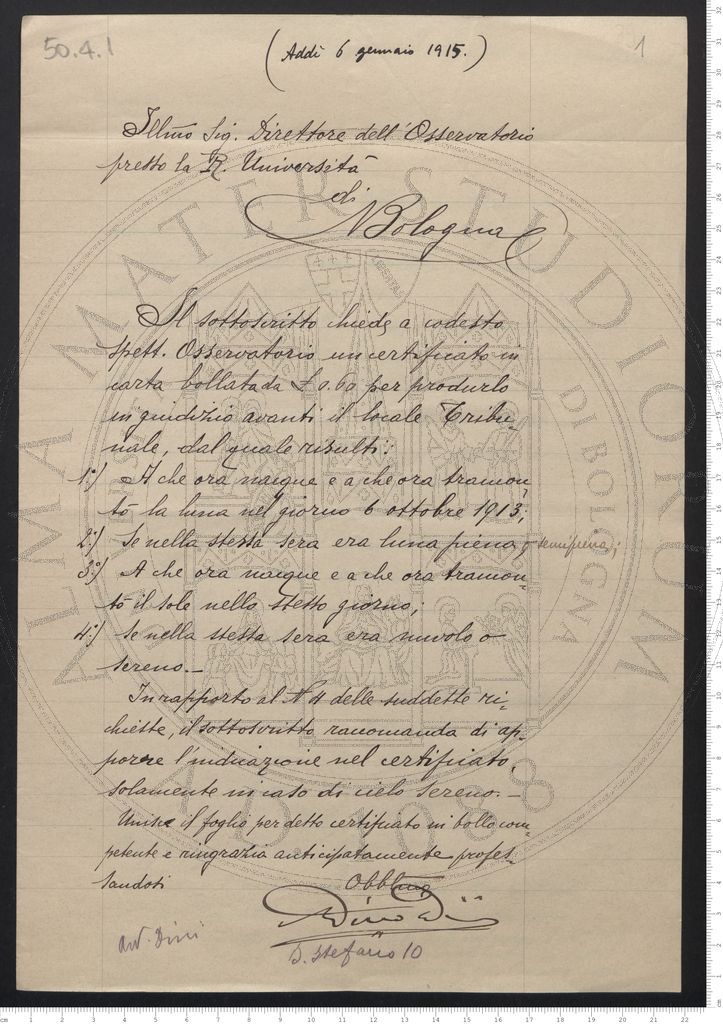 50.4.1
(Addì 6 gennaio 1915.)
1
Illmo Sig. Direttore dell'Osservatorio
presso la R. Università
di
Bologna
Il sottoscritto chiede a codesto
spett. Osservatorio un certificato in
carta bollata da £ 0.60 per produrlo
in giudizio avanti il locale Tribu-
nale, dal quale risulti:
1º/ A che ora nacque e a che ora tramon-
tò la luna nel giorno 6 ottobre 1913;
2º/ Se nella stessa sera era luna piena o semipiena;
3º/ A che ora nacque e a che ora tramon-
tò il sole nello stesso giorno;
4º/ Se nella stessa sera era nuvolo o
sereno.–
In rapporto al N 4 delle suddette ri-
chieste, il sottoscritto raccomanda di ap-
porre l'indicazione nel certificato,
solamente in caso di cielo sereno.–
Unisce il foglio per detto certificato in bollo com-
petente e ringrazia anticipatamente profes-
sandosi
Obblmo
Dino Dini
Avv. Dini
S. Stefano 10
ALMA MATER STUDIORUM
A.D. 1088